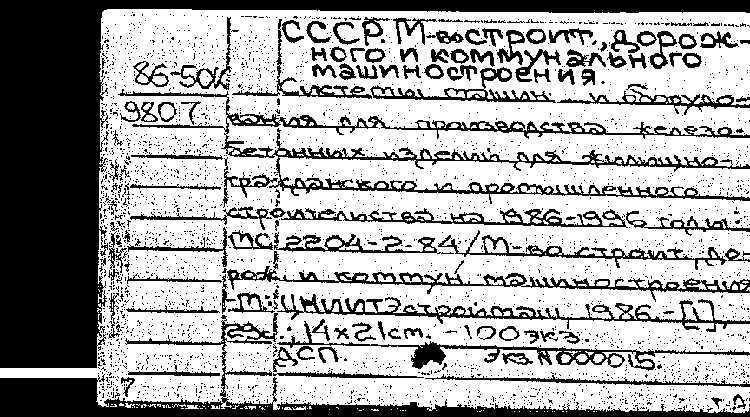 СССР. М-во строит., дорож-
ного и коммунального
машиностроения.
86-50к
Системы машин и оборудо-
9807
вания для производства железо-
бетонных изделий для жилищно-
гражданского и промышленного
строительства на 1986-1996 годы:
МС 2204-2-84/М-во строит., до-
рож. и коммун. машиностроения
-М.: ЦНИИТЭстроймаш, 1986.-[1],
29с.; 14x21cm. -100 экз.
ДСП. Экз.N000015.